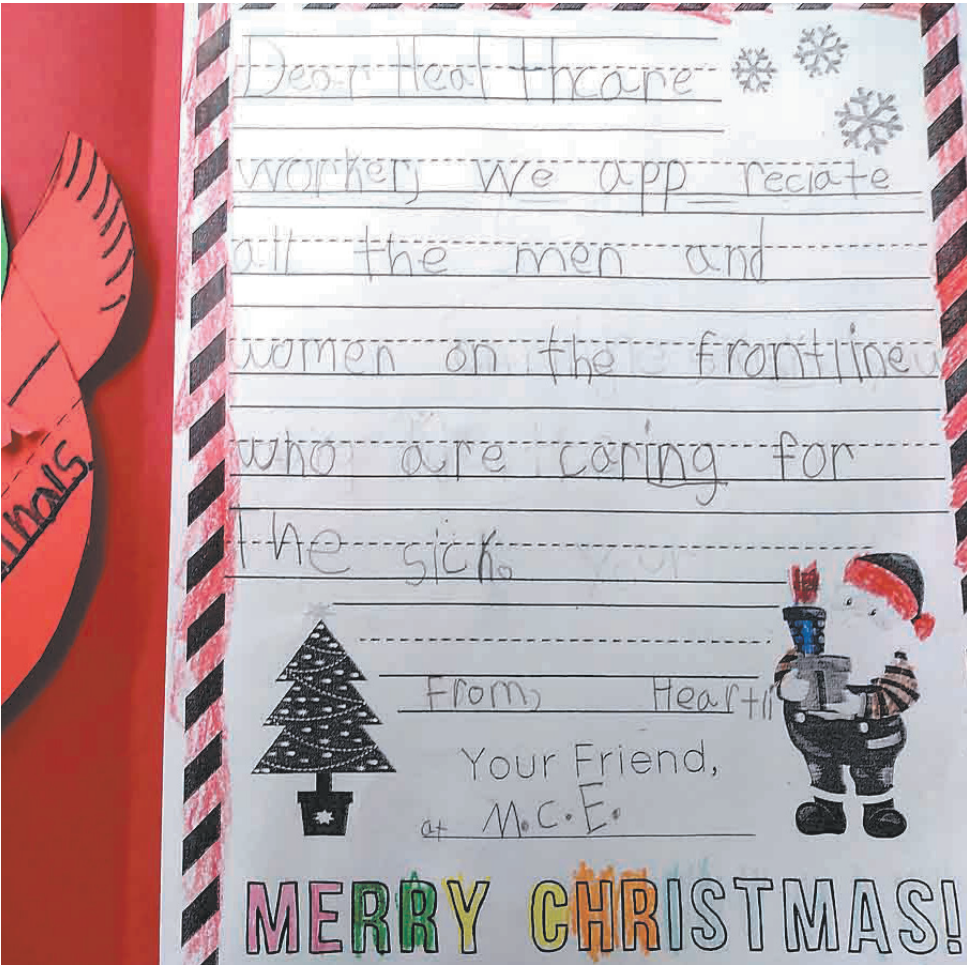 Dear Healthcare
worker, we appreciate
all the men and
women on the frontline
who are caring for
The sick.
From,
Your Friend,
at M.C.E.
MERRY CHRISTMAS!